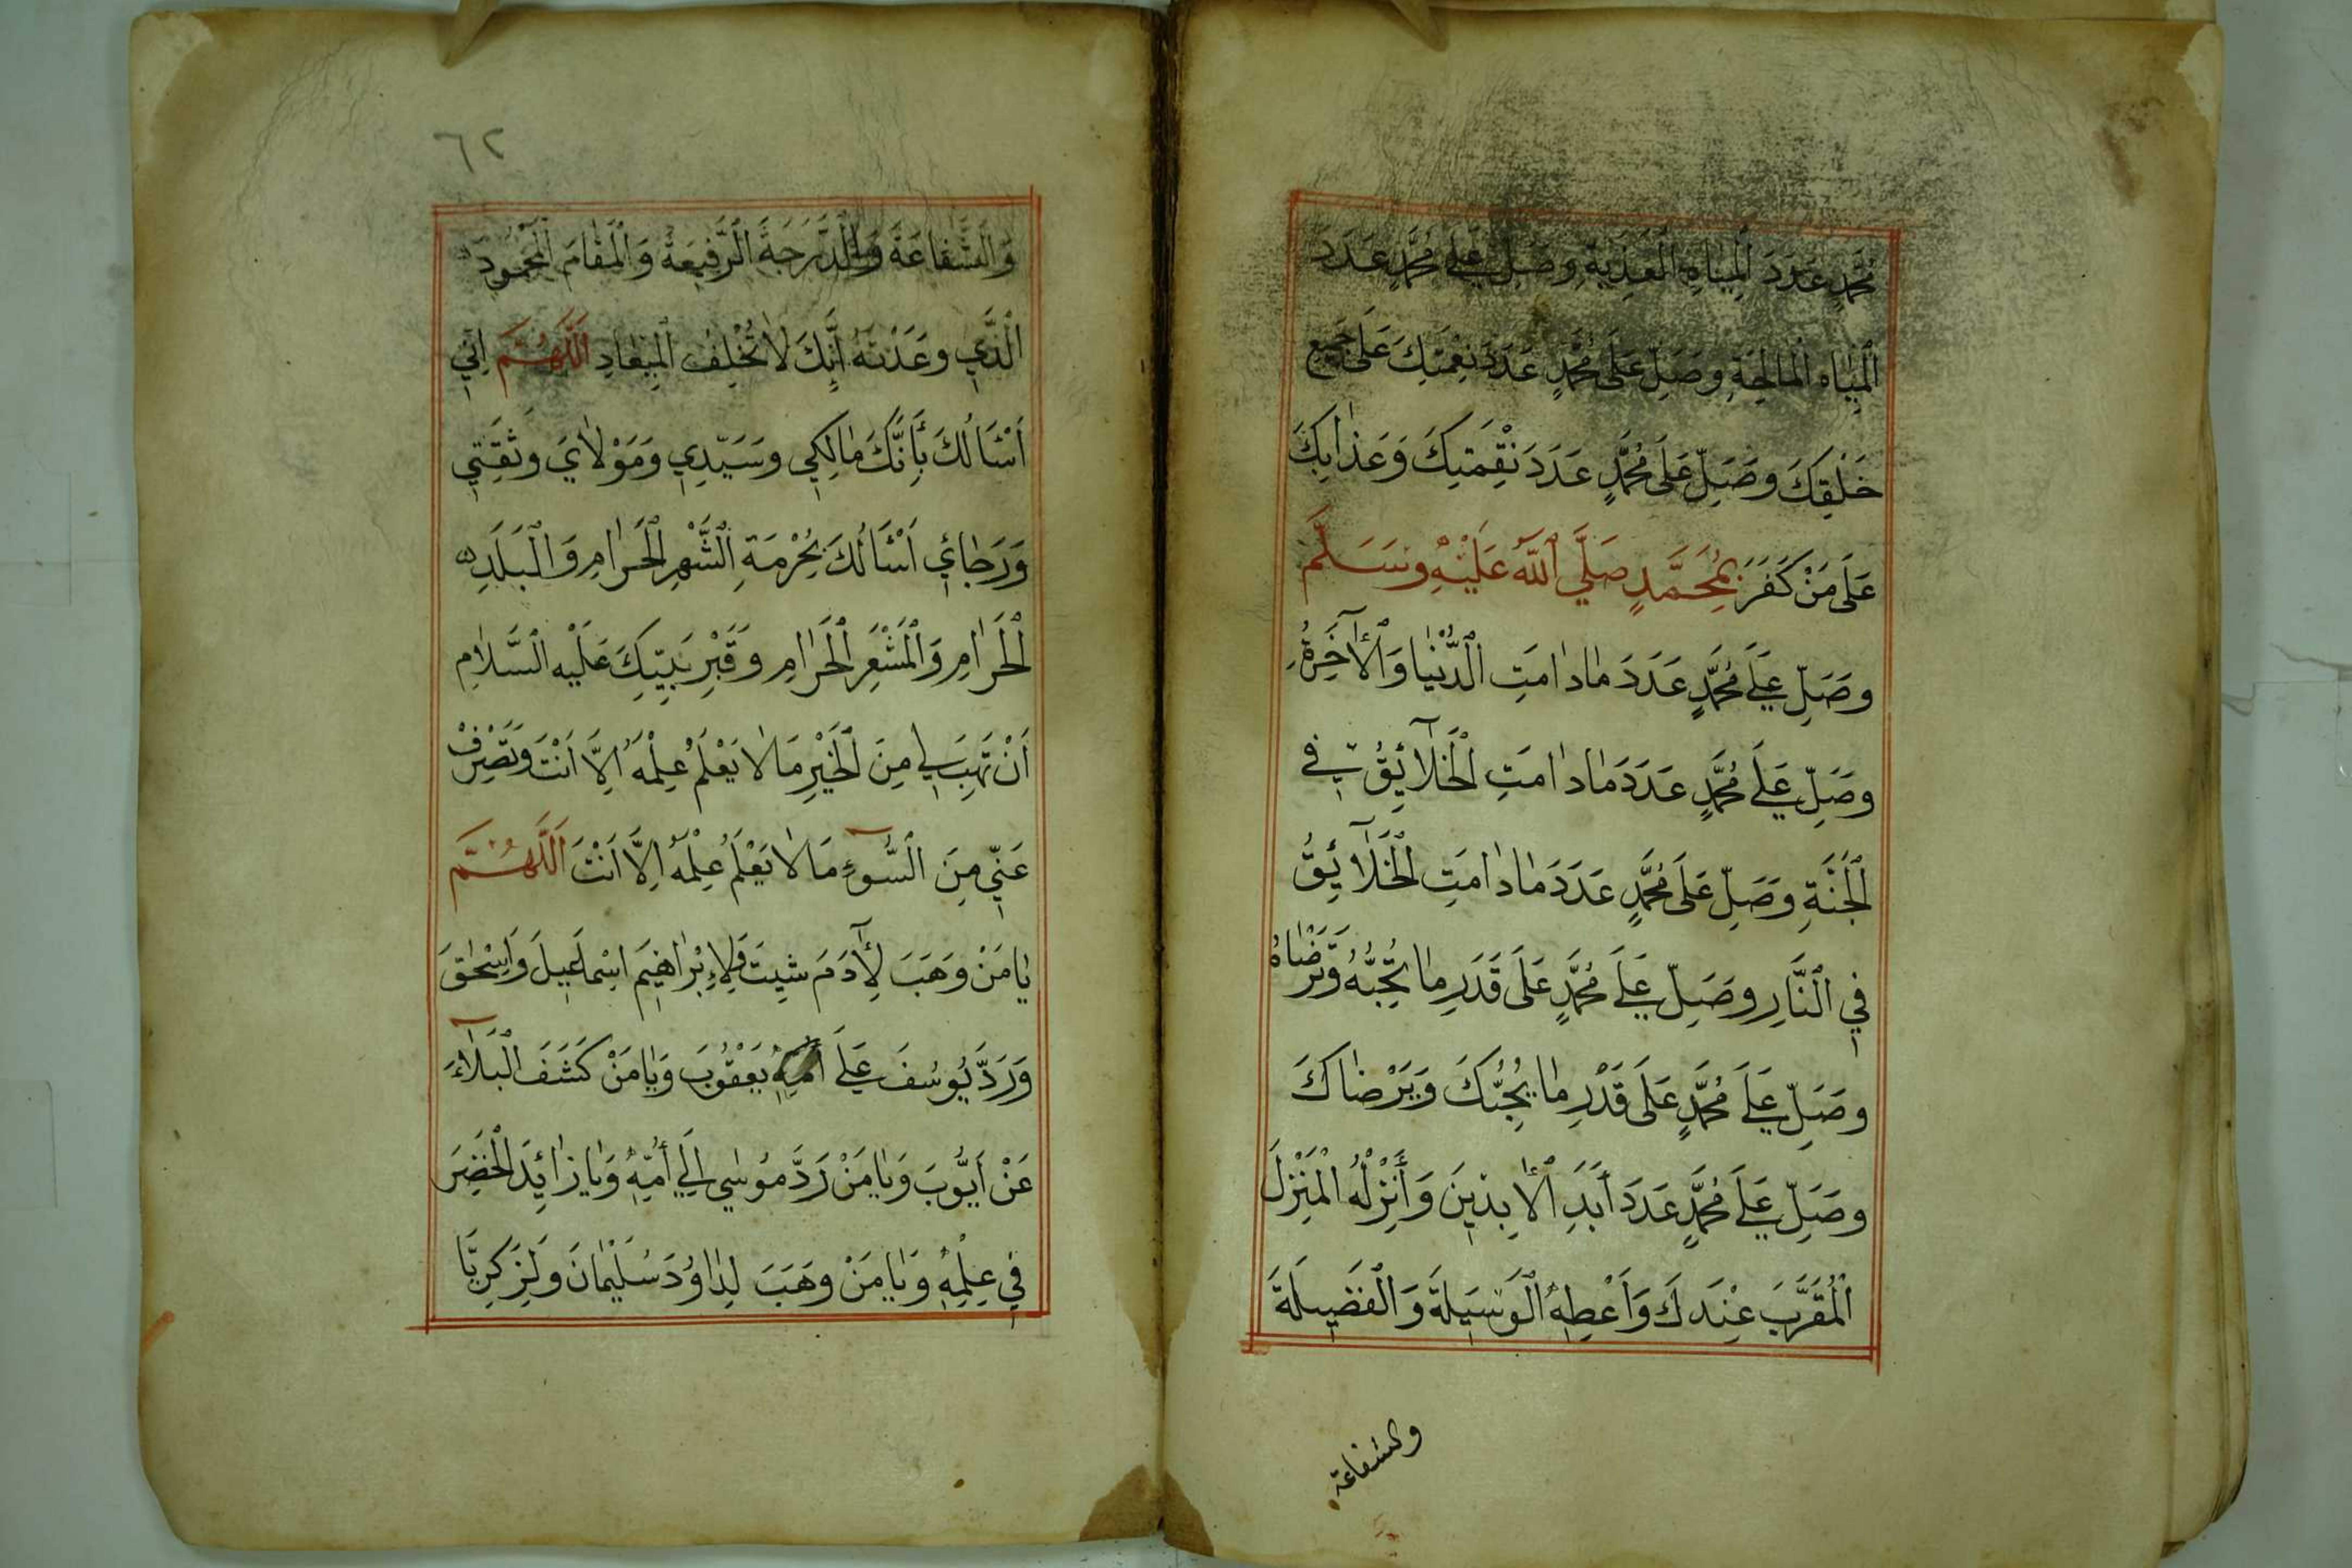 مُحَمَّدٍ عَدَدَ الْمِيَاهِ الْعَذِبَةِ وصَلِّ عَلَى مُحَمَّدٍ عَدَدَ
الْمِيَاهِ الْمَالِحَةِ وصَلِّ عَلَى مُحَمَّدٍ عَدَدَ نِعْمَتِكَ عَلَى جَمِيعِ
خَلْقِكَ وصَلِّ عَلَى مُحَمَّدٍ عَدَدَ نِقْمَتِكَ وَعَذَابِكَ
عَلَى مَنْ كَفَرَ بِمُحَمَّدٍ صَلَّى اللهُ عَلَيْهِ وسَلَّمَ
وصَلِّ عَلَى مُحَمَّدٍ عَدَدَ مَادَامَتِ الدُّنْيَا وَالْآخِرَةُ
وصَلِّ عَلَى مُحَمَّدٍ عَدَدَ مَادَامَتِ الْخَلَآئِقُ فِي
الْجَنَّةِ وصَلِّ عَلَى مُحَمَّدٍ عَدَدَ مَادَامَتِ الْخَلَآئِقُ
فِي النَّارِ وصَلِّ عَلَى مُحَمَّدٍ عَلَى قَدَرِ مَا تُحِبُّهُ وَتَرْضَاهُ
وصَلِّ عَلَى مُحَمَّدٍ عَلَى قَدْرِ مَا يُحِبُّكَ وَيَرْضَاكَ
وصَلِّ عَلَى مُحَمَّدٍ عَدَدَ أَبَدِ الْأَبِدِينَ وَأَنْزِلْهُ الْمَنْزِلَ
الْمُقَرَّبَ عِنْدَكَ وَاَعْطِهِ الْوَسِيلَةَ وَالْفَضِيلَةَ
والشفاعة
٦٢
وَالشَّفَاعَةَ وَالدَّرَجَةَ الرَّفِيعَةَ وَالْمَقَامَ الْمَحْمُودَ
الَّذِي وعَدْتَهُ اَنِّكَ لَا تُخْلِفُ الْمِيعَادِ اَللَّهُمَّ اِنِّي
اَسْئَالُكَ بِأَنَّكَ مَالِكِي وسَيِّدِي وَمَوْلَايَ وَثِقَتِي
وَرَجَائِي اَسْئَالُكَ بِحُرْمَةِ الشَّهْرِ الْحَرَامِ وَالْبَلَدِ
الْحَرَامِ وَالْمَشْعَرِ الْحَرَامِ وَقَبْرِ نَبِيِّكَ عَلَيْهِ السَّلَامِ
اَنْ تَهَبَ لِي مِنَ الْخَيْرِ مَا لَا يَعْلَمُ عِلْمَهُ اِلَّا اَنْتَ وَتَصْرِفْ
عَنِّي مِنَ السُّوءِ مَا لَا يَعْلَمُ عِلْمَهُ اِلَّا اَنْتَ اَللَّهُمَّ
يَا مَنْ وَهَبَ لِآدَمَ شِيتَ وَلِإِبْرَاهِيمَ اِسْمَاعِيلَ وَاِسْحٰقَ
وَرَدَّ يُوسُفَ عَلَى يَعْقُوبَ وَيَا مَنْ كَشَفَ الْبَلَآءَ
عَنْ اَيُّوبَ وَيَا مَنْ رَدَّ مُوسٰى اِلَى أُمِّهِ وَيَا زَائِدَ الْخَضِرَ
فِي عِلْمِهِ وَيَا مَنْ وهَبَ لِدَاوُدَ سُلَيْمَانَ وَلِزَكَرِيَّا